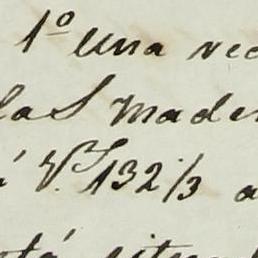 1º una rec
las Mader
á V.S 132/3 a
tá situ